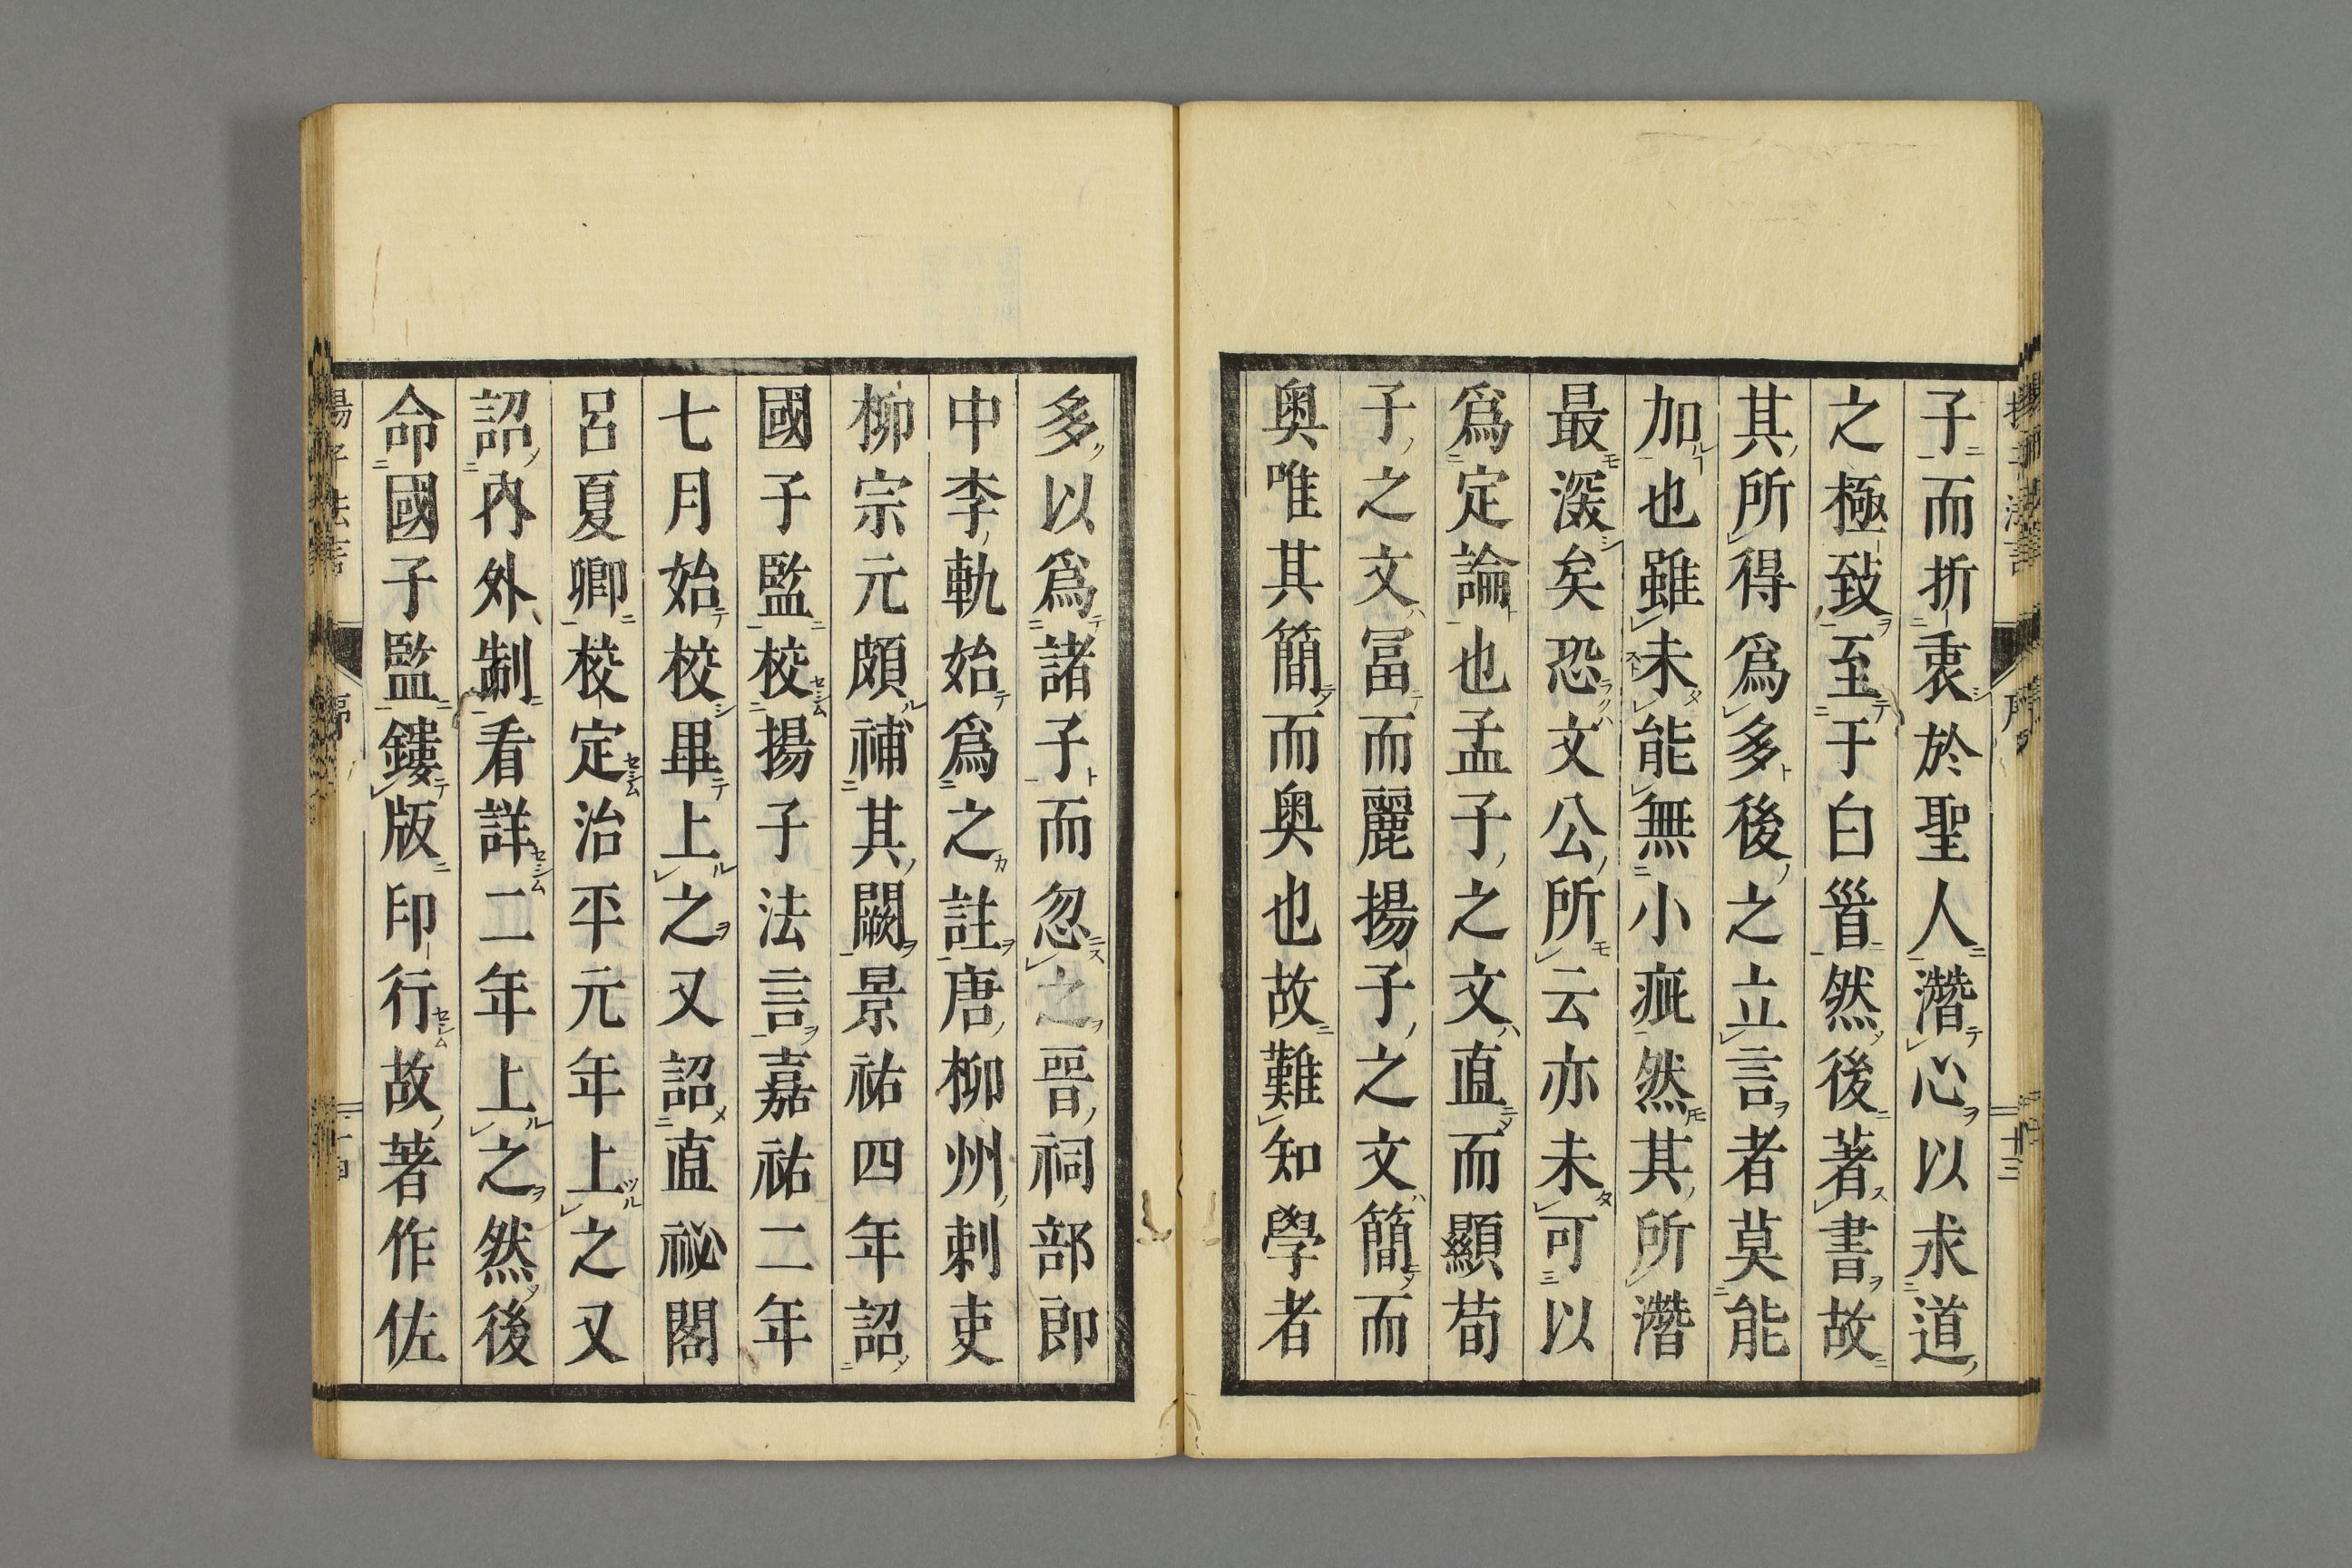 子而折衷於聖人潛心以求道
之極致至于白首然後著書故
其所得爲多後之立言者莫能
加也雖未能無小疵然其所潛
最深矣恐文公所云亦未可以
爲定論也孟子之文直而顯荀
子之文富而麗揚子之文簡而
奥唯其簡而奥也故難知學者
多以爲諸子而忽之晉祠部郎
中李軌始爲之註唐柳州刺史
柳宗元頗補其闕景祐四年詔
國子監校揚子法言嘉祐二年
七月始校畢上之又詔直祕閣
呂夏卿校定治平元年上之又
詔内外制看詳二年上之然後
命國子監鏤版印行故著作佐